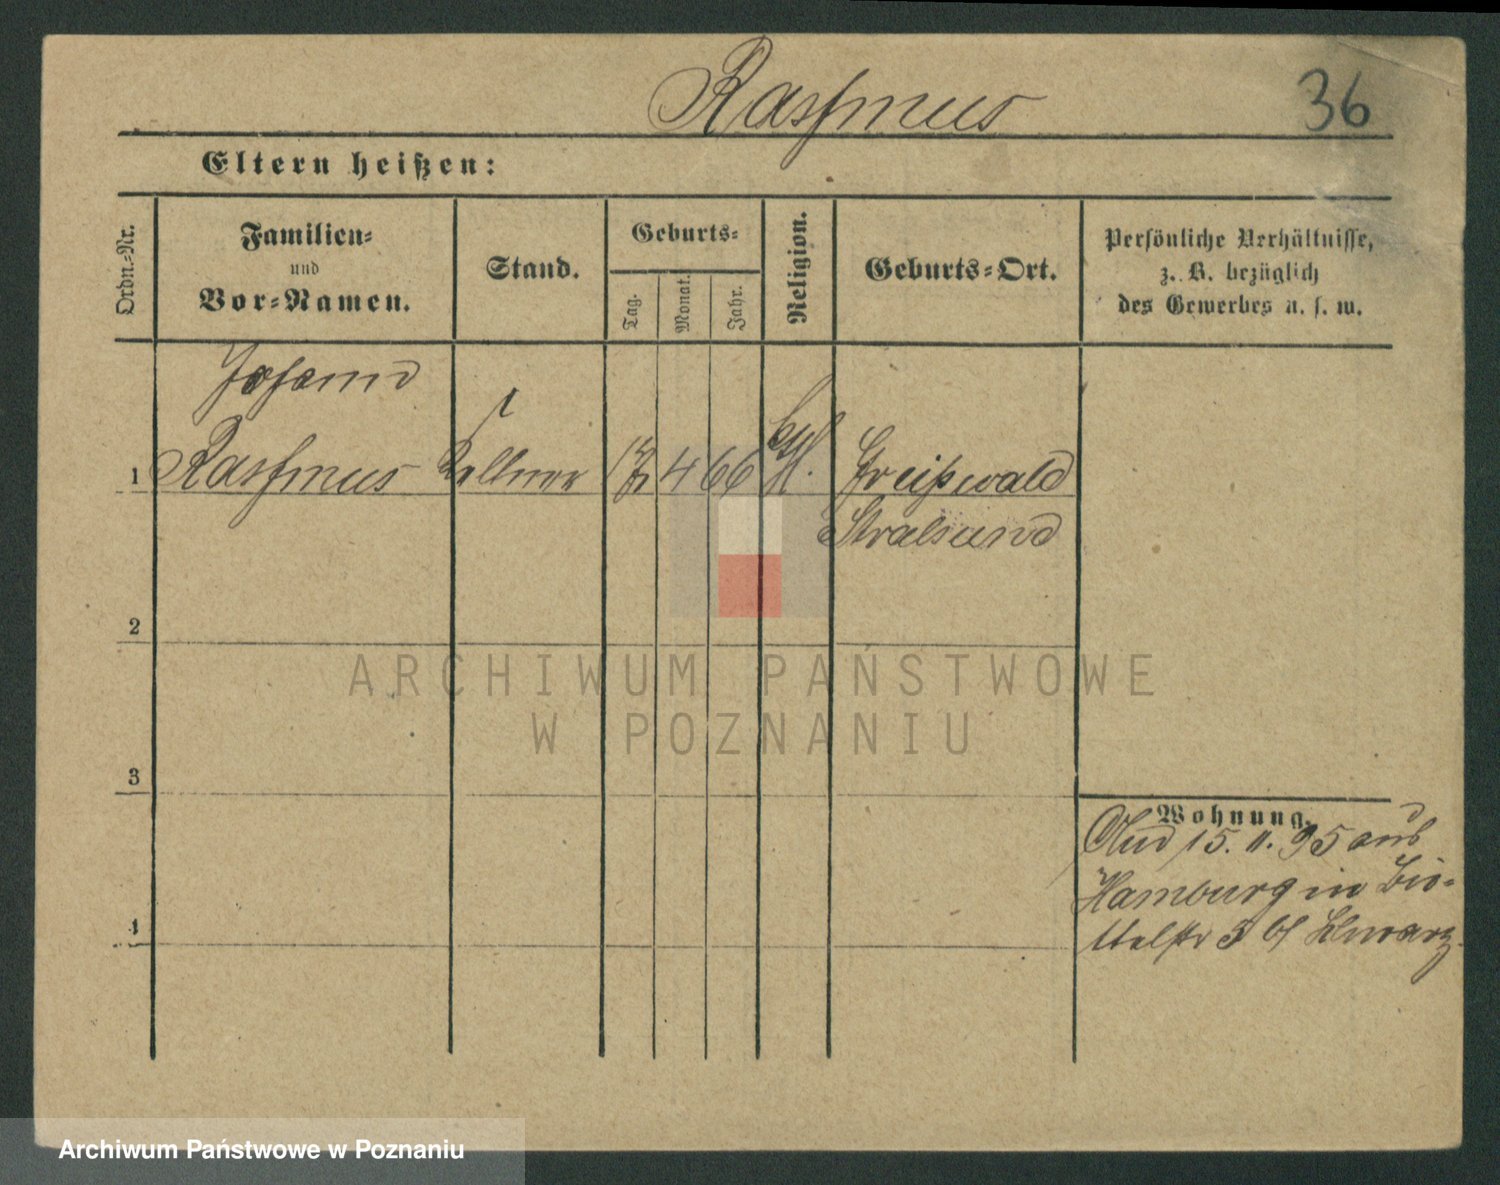 Rassmus
36
Eltern heißen:
Ordn.-Nr.
Familien-
und
Vor-Namen.
Stand.
Geburts-
Tag.
Monat.
Jahr.
Religion.
Geburts-Ort.
Persönliche Verhältnisse,
z. B. bezüglich
des Gewerbes u. s. w.
Johann
1 Rassmus Kellner 4 66 Greifswald
Stralsund
2
3
Wohnung.
15. 11. 95 aus
Hamburg in
3 Schwarz
4
ARCHIWUM PAŃSTWOWE
W POZNANIU
Archiwum Państwowe w Poznaniu